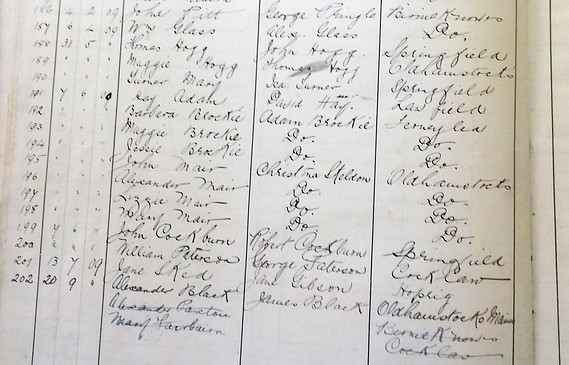 186 4 2 09 John Pitt George Pringle Birnieknowes
187 6 4 09 Wm Glass Alex. Glass Do.
188 31 5 " Thomas Hogg John Hogg. Springfield
189 " " " Maggie Hogg Thomas Hogg Oldhamstocks
190 " " " Turner Mary Isa Turner Springfield
191 7 6 09 Hay Adam David Hay. Lawfield
192 " " " Barbara Brockie Adam Brockie Ferneylea
193 " " " Maggie Brockie Do. Do.
194 " " " Jessie Brockie Do. Do.
195 " " " John Mair Christina Sheldon Oldhamstocks
196 " " " Alexander Mair Do. Do.
197 " " " Lizzie Mair Do. Do.
198 " " " Mary Mair Do. Do.
199 7 6 " John Cockburn Robert Cockburn Springfield
200 " " " William Paterson George Paterson Cocklaw
201 13 7 09 Jane Jane Gibson
202 20 9 " Alexander Black James Black Oldhamstocks Mains
Alexander Paxton Birnieknowes
Mary Fairbairn Cocklaw